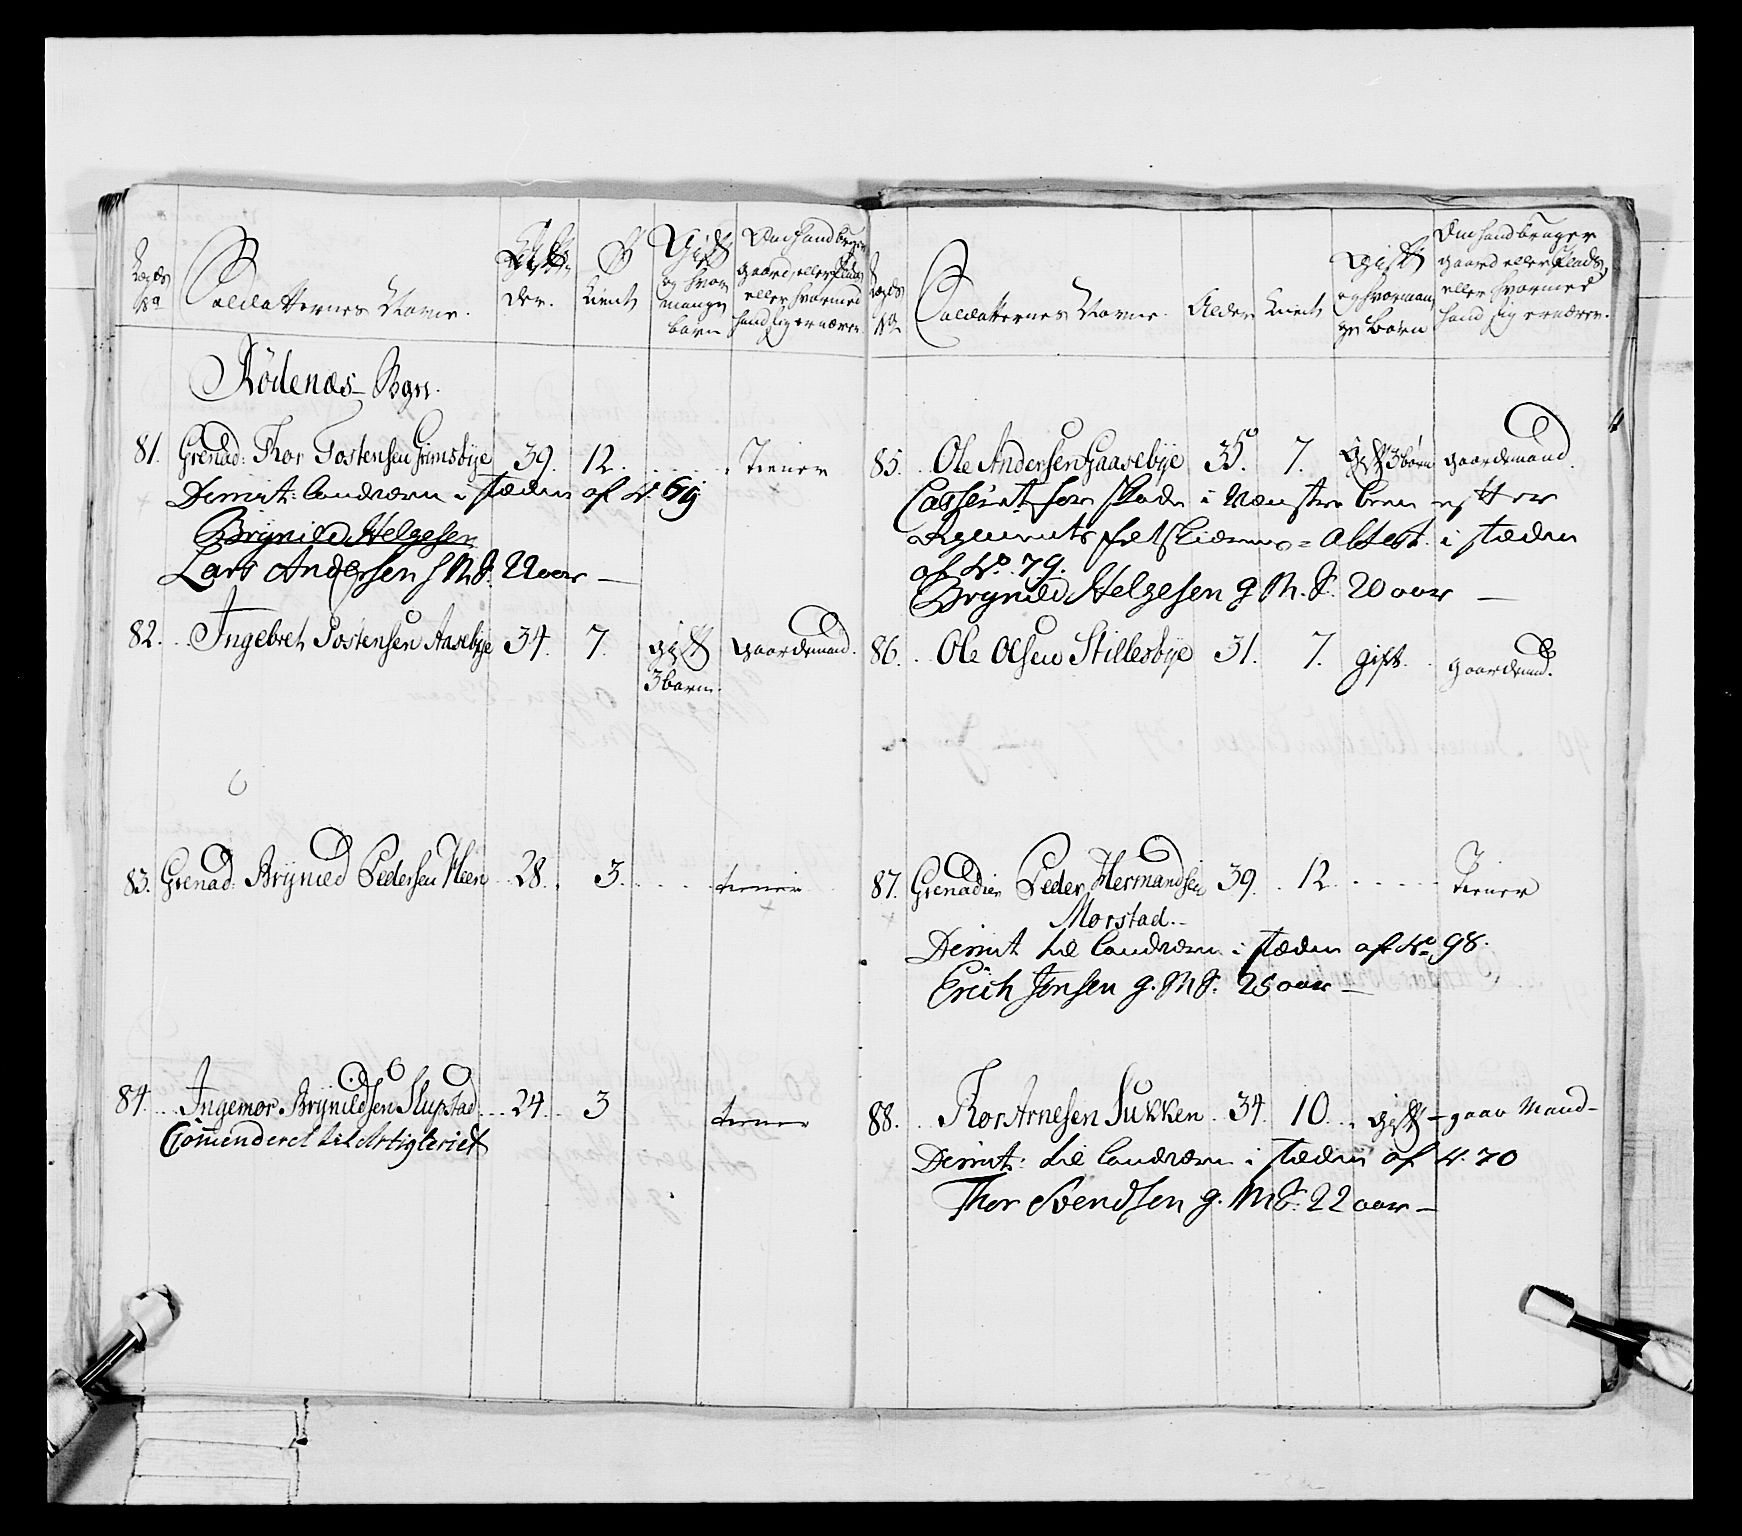 Lægds
No
Soldatternes Navne.
Al-
der.
Tient
Gift
og hvor
mange
børn
Om hand bruger
gaard, eller Plads
eller hvormed
hand sig ernærer
Rödenæs-
81. Grenad: Thor Tostensen Grimsbye 39. 12. Tiener
Dimit: landværn i stæden af N. 69
Brynild Helgesen
Lars Andersen g M S. 22 aar —
82. Ingebret Tostensen Aasebye 34. 7. gift gaardmand.
3 børn.
83. Grenad: Brynild Pedersen Kleen 28. 3. tiener
84. Ingemor Brynildsen Slupstad 24. 3 tiener
Commenderet til Artigleriet
Lægds
No
Soldatternes Navne. Alder Tient
Gift
og hvorman
ge børn
Om hand bruger
gaard eller Plads,
eller hvormed
hand sig ernærer.
85. Ole Andersen Gaasebye 35. 7. Gift 3 børn gaardmand.
Casseret for skade i venstre been efter
Regiments feltskierens Attest. i stæden
af No. 79.
Brynild Helgesen g M. S. 20 aar —
86. Ole Olsen Stillesbye 31. 7. gift. gaardmand.
87. Grenadier Peder Hermandsen 39. 12 Tiener
Morstad.
Dimit til landværn i stæden af No 98.
Erich Jensen g. M S. 25 aar —
88. Thor Arnesen Sukken 34. 10. gift — gaar Mand —
Dimit: til landværn i stæden af N. 70
Thor Svendsen g. M S. 22 aar —